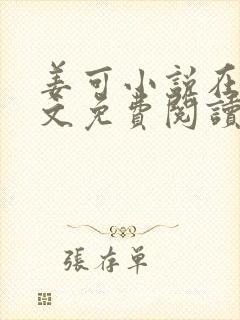 姜可小說在
文免費閱讀
張存單